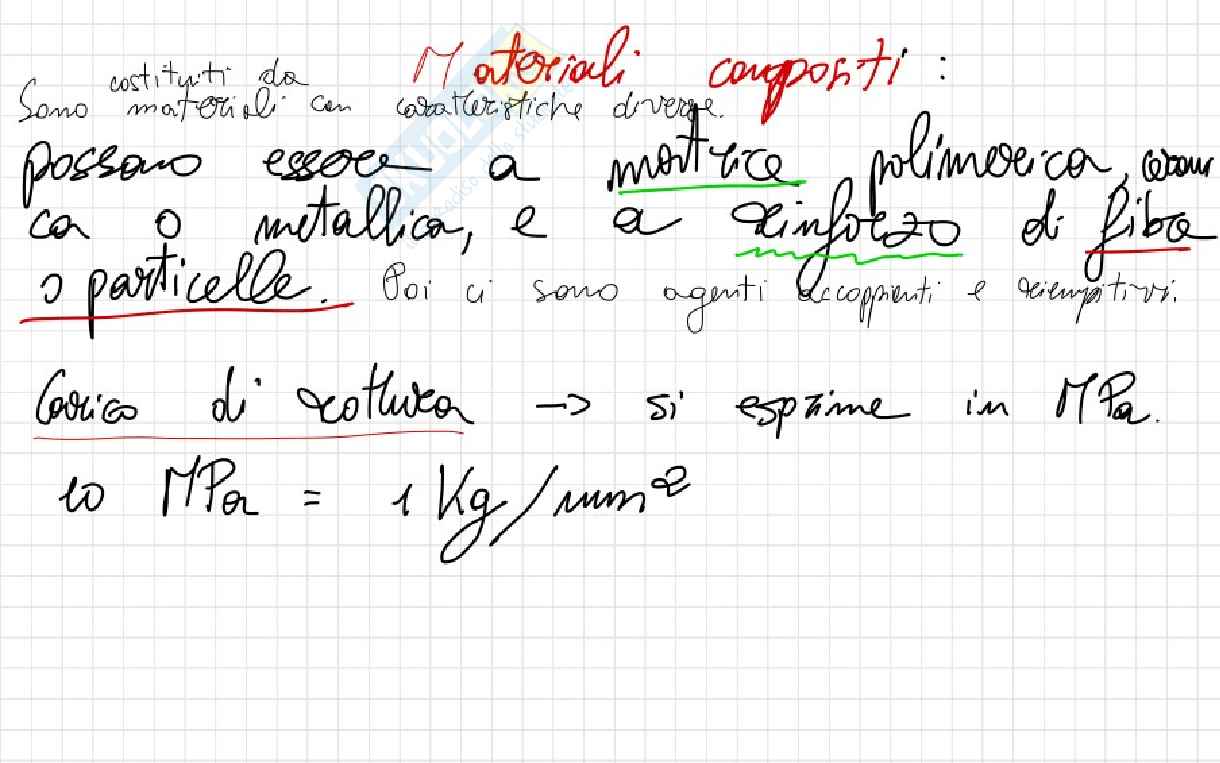 Materiali compositi:
Sono costituiti da materiali con caratteristiche diverse.
possono essere a matrice polimerica, cerami
ca o metallica, e a rinforzo di fibra
o particelle. Poi ci sono agenti accoppianti e riempitivi.
Carico di rottura -> si esprime in MPa.
10 MPa = 1 Kg/mm²